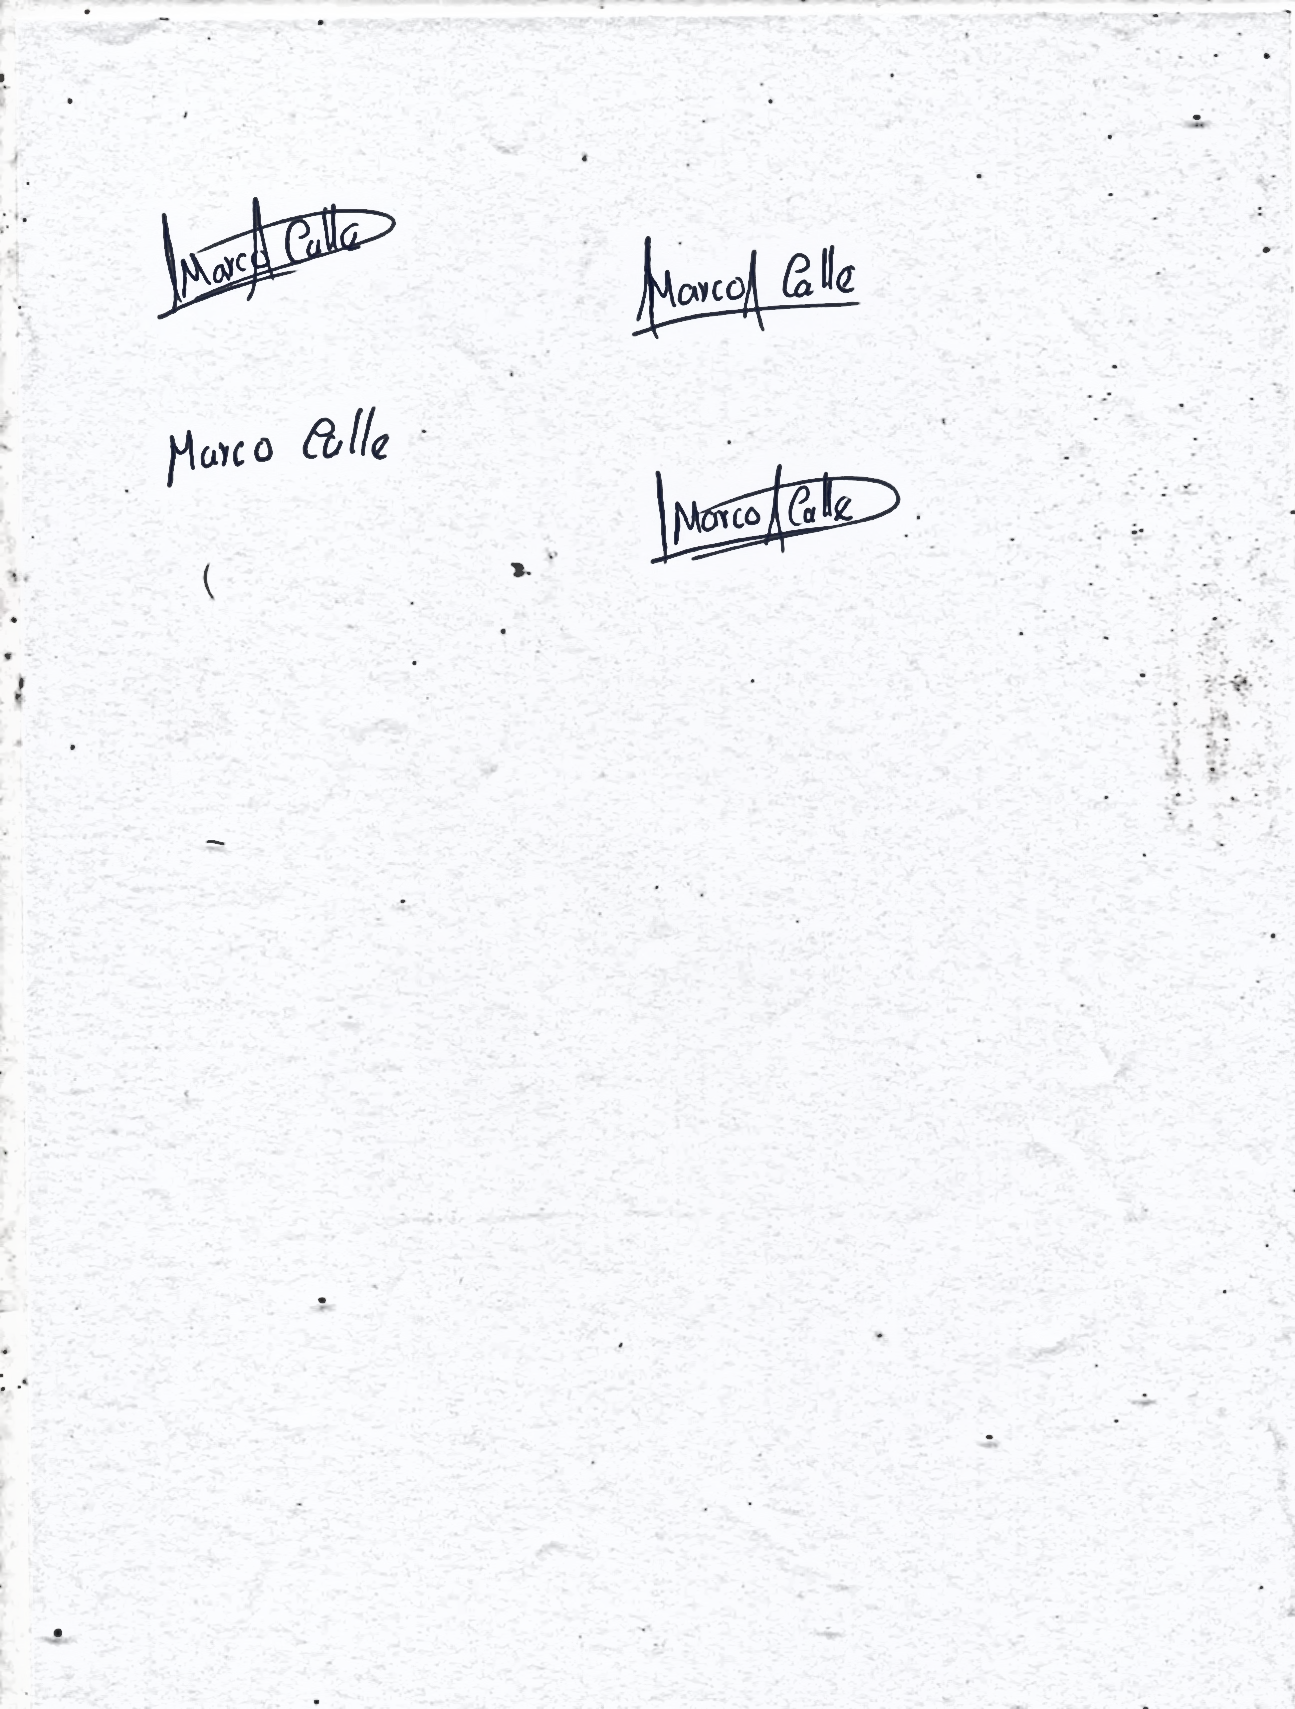 Marco A Calle
Marco A Calle
Marco Calle
Marco A Calle